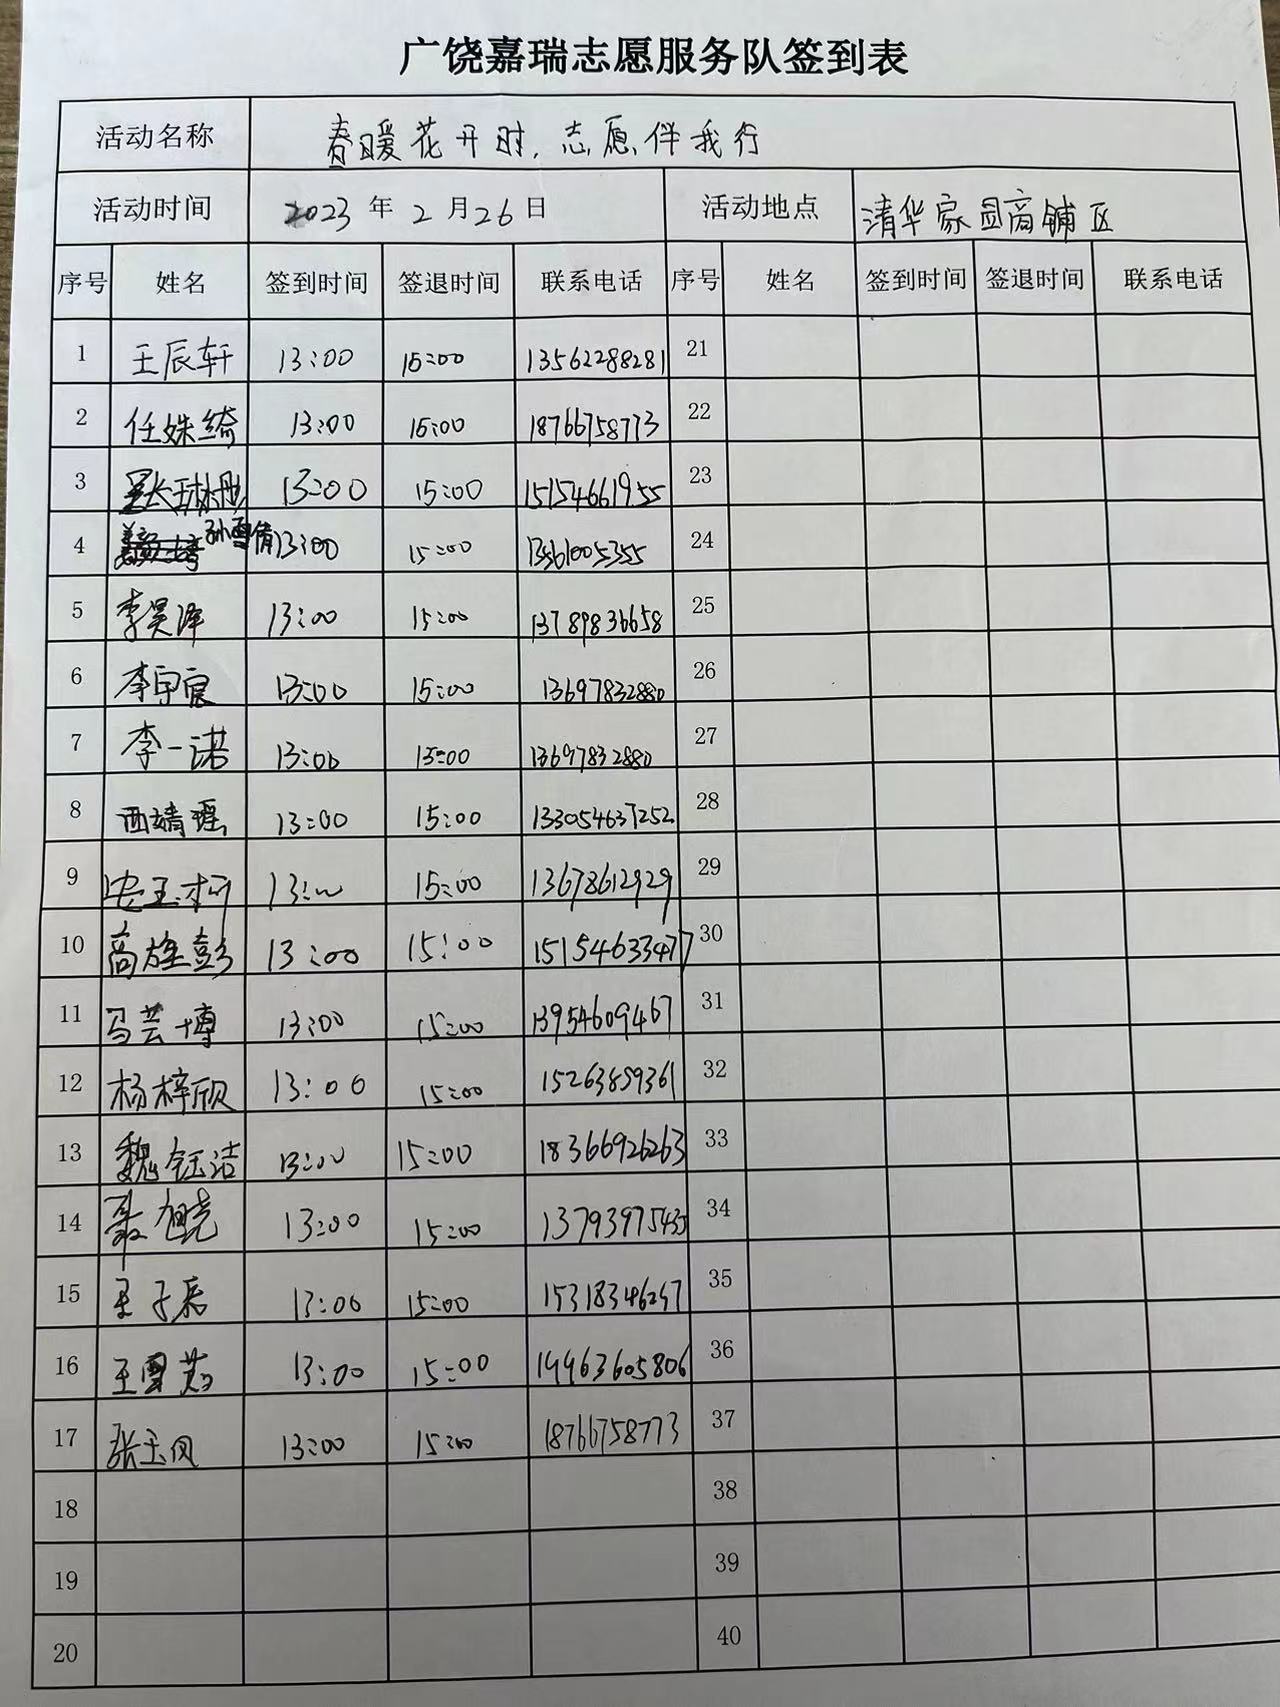 广饶嘉瑞志愿服务队签到表
活动名称 春暖花开时，志愿伴我行
活动时间 2023 年 2 月 26 日 活动地点 清华家园商铺区
序号 姓名 签到时间 签退时间 联系电话 序号 姓名 签到时间 签退时间 联系电话
1 王辰轩 13:00 15:00 13562288281 21
2 任姝绮 13:00 15:00 18766758773 22
3 13:00 15:00 15154661955 23
4 孙雪倩 13:00 15:00 13561005355 24
5 李昊泽 13:00 15:00 13789836658 25
6 李宇宸 13:00 15:00 13697832880 26
7 李一诺 13:00 15:00 13697832880 27
8 西靖瑶 13:00 15:00 133054637252 28
9 13:00 15:00 13678612929 29
10 高雄彭 13:00 15:00 15154633477 30
11 马芸博 13:00 15:00 13954609467 31
12 杨梓欣 13:00 15:00 15263859361 32
13 魏钰洁 13:00 15:00 18366926263 33
14 聂旭尧 13:00 15:00 13793975435 34
15 王子辰 13:00 15:00 15318346247 35
16 13:00 15:00 19963605806 36
17 张玉凤 13:00 15:00 18766758773 37
18 38
19 39
20 40